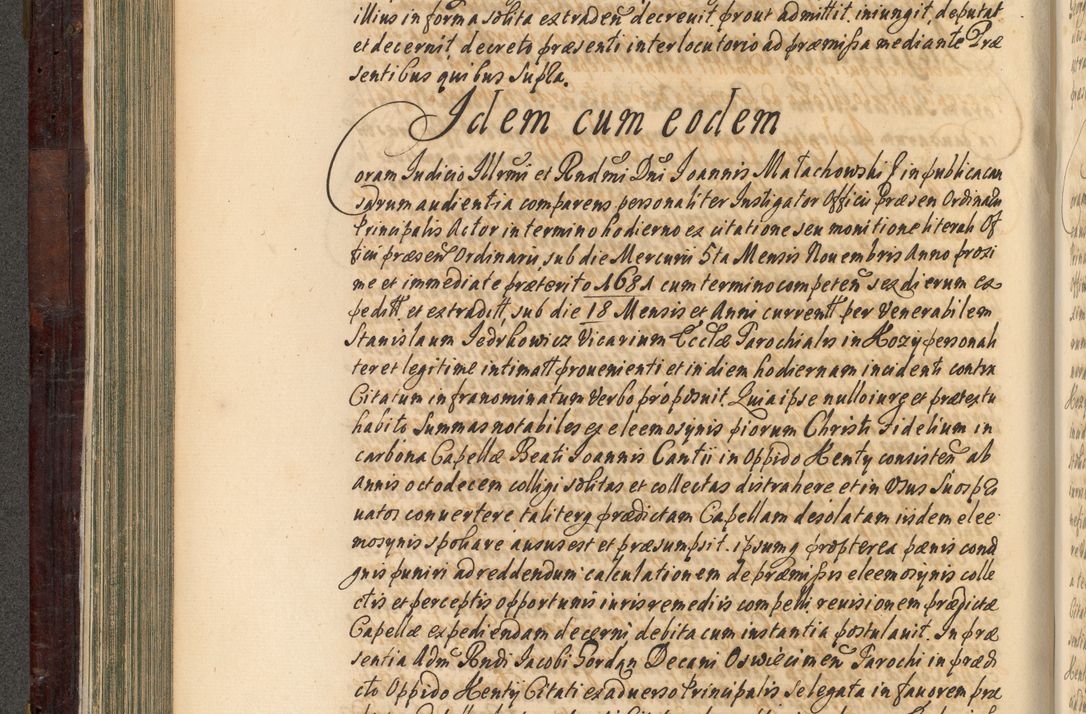 illius in forma solita extraden̄ decreuit prout admittit, iniungit, deputat
et decernit, decreto præsenti interlocutorio ad præmissa mediante Præ
sentibus quibus supla.
Idem cum eodem
Coram Judicio Illrmi et Rndmi Dni Joannis Małachowski f in publica cau
sarum audientia comparens personaliter Instigator Officii Præsen Ordinarii
Principalis Actor in termino hodierno ex citatione seu monitione literali Of
ficii præsen Ordinarii, sub die Mercurii 5ta Mensis Nouembris Anno proxi
me et immediate præterito 1681 cum termino competen̄ sex dierum ex
peditt et extraditt sub die 18 Mensis et Anni currentt per Venerabilem
Stanislaum Jedrkowicz Vicarium Ecclæ Parochialis in Kozy personali
ter et legitime intimatt prouenienti et in diem hodiernam incidenti contra
Citatum infranominatum verbo proposuit. Quia ipse nullo iure et prætextu
habito summas notabiles ex eleemosynis piorum Christi fidelium in
carbona Capellæ Beati Joannis Cantii in Oppido Kenty consisten̄ ab
annis octodecem colligi solitas et collectas distrahere et in Usus suos pri
uatos conuertere taliterq prædictam Capellam desolatam iisdem elee
mosynis spoliare ausus est et præsumpsit. ipsumq propterea pænis condi
gnis puniri ad reddendum calculationem de præmissis eleemosynis colle
ctis et perceptis opportunis iuris remediis compelli reuisionem prædictæ
Capellæ expediendam decerni debita cum instantia postulauit. In præ
sentia Adm̄ Rndi Jacobi Gordan Decani Oswiecimen̄ Parochi in prædi
cto Oppido Kenty Citati ex aduerso Principalis delegata in fauorem præ